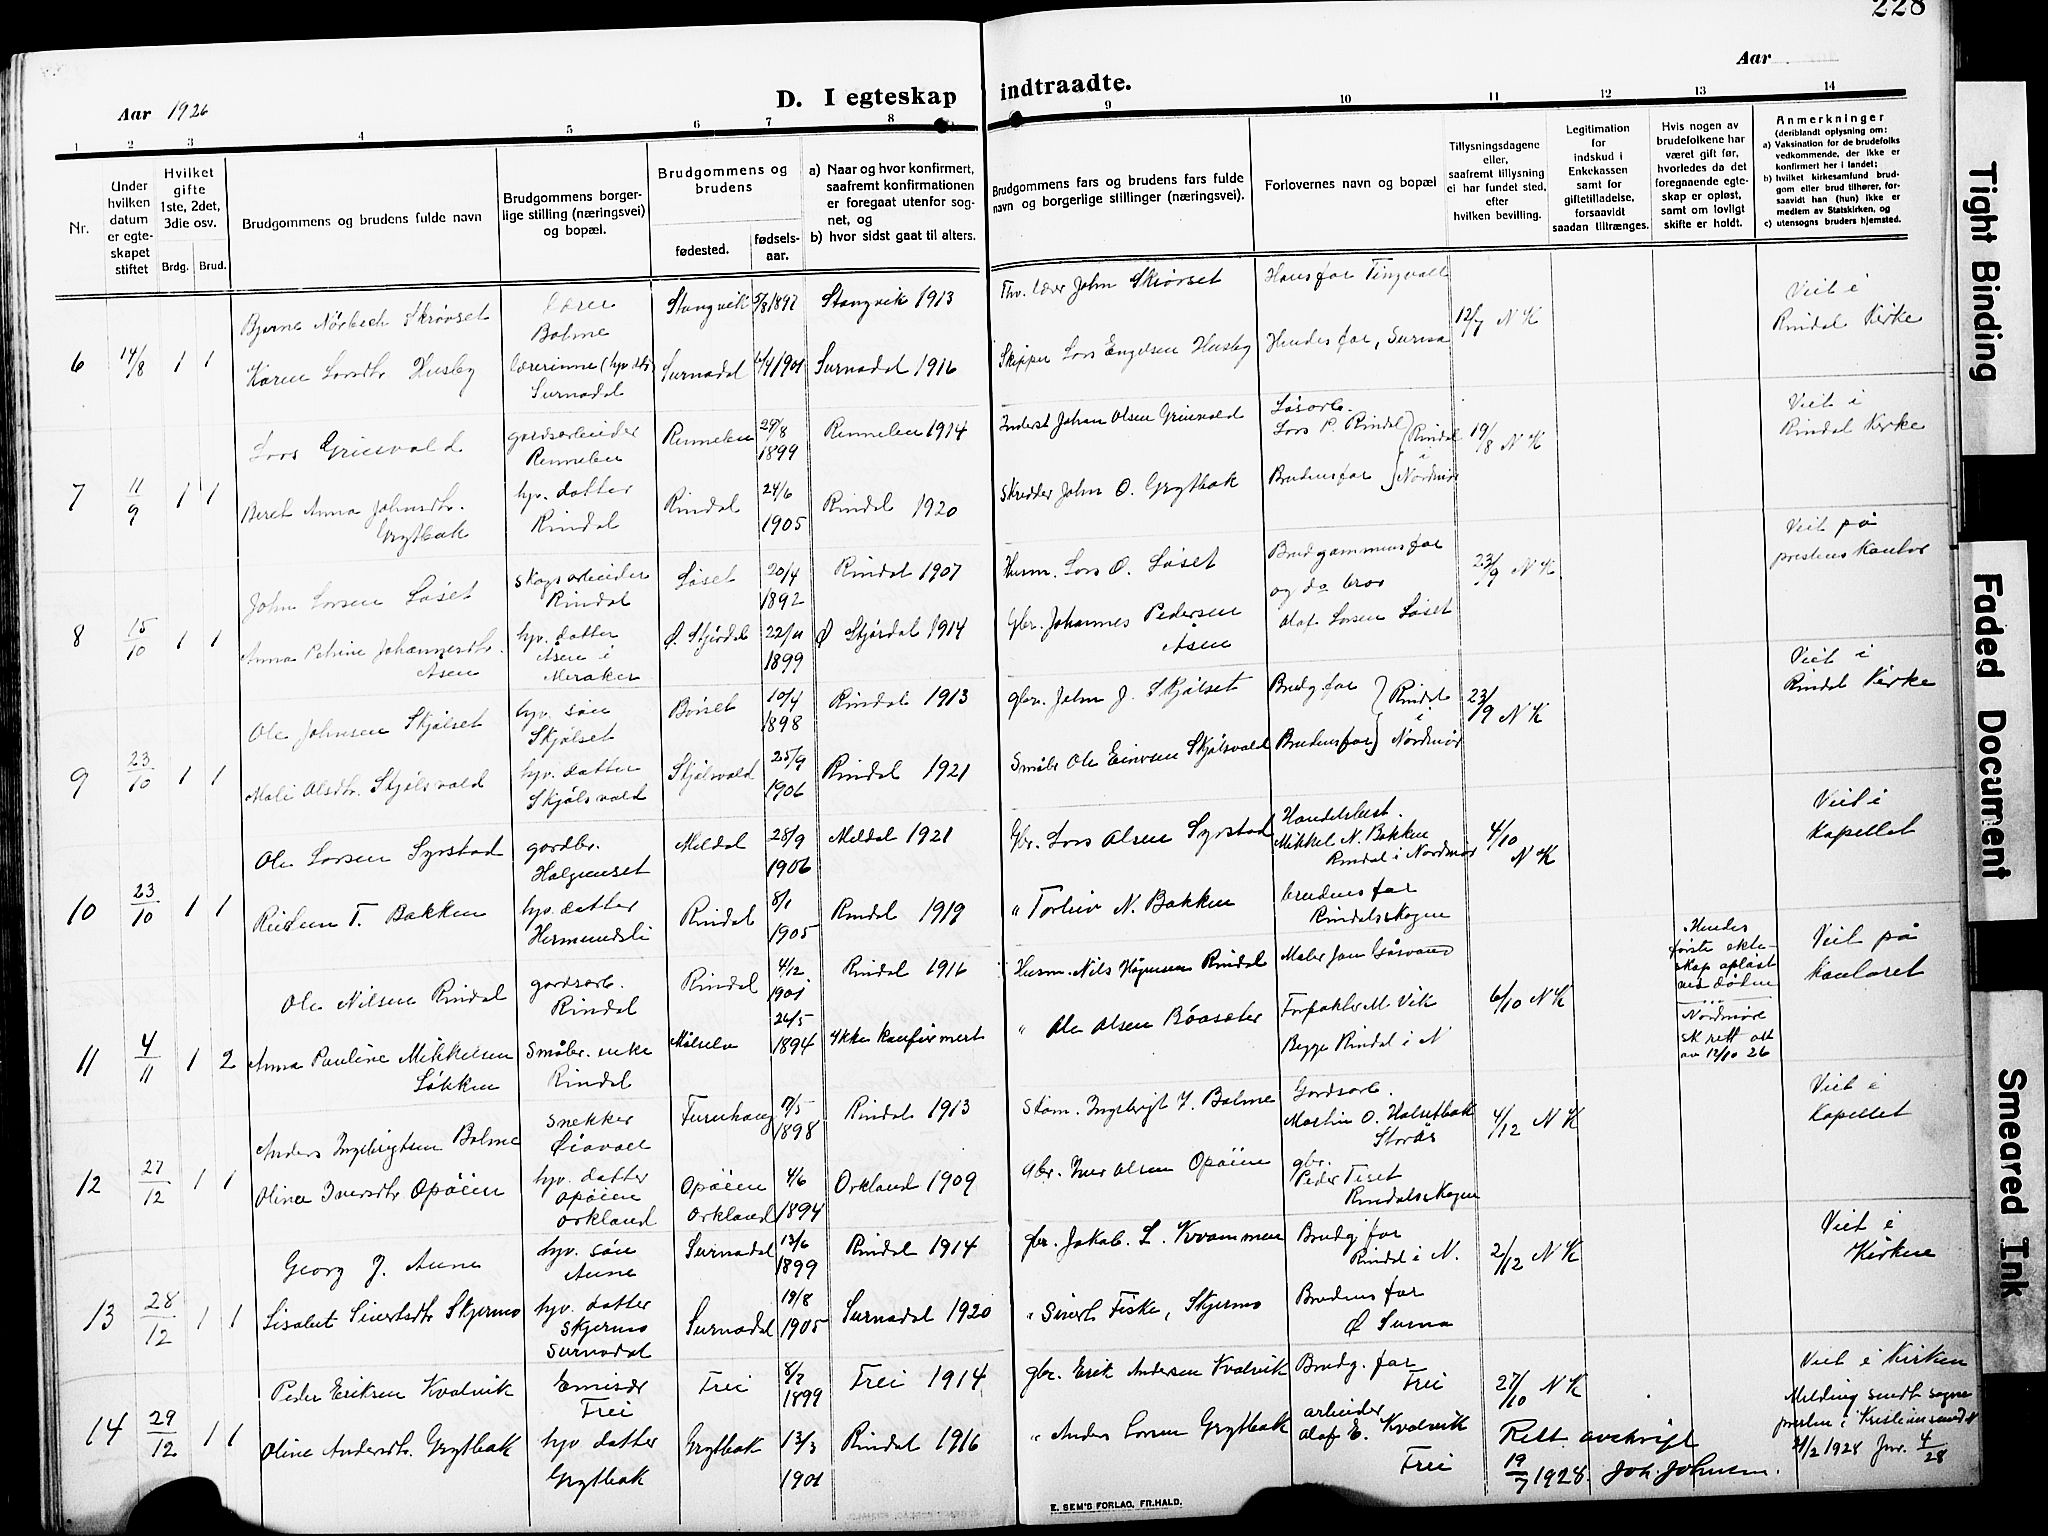 228
Aar 1926
D. I egteskap indtraadte.
Aar
1 2 3 4 5 6 7 8 9 10 11 12 13 14
Nr.
Under hvilken datum er egteskapet stiftet
Hvilket gifte 1ste, 2det, 3die osv.
Brdg. Brud.
Brudgommens og brudens fulde navn
Brudgommens borgerlige stilling (næringsvei) og bopæl.
Brudgommens og brudens
fødested.
fødselsaar.
a) Naar og hvor konfirmert, saafremt konfirmationen er foregaat utenfor sognet, og
b) hvor sidst gaat til alters.
Brudgommens fars og brudens fars fulde navn og borgerlige stillinger (næringsvei).
Forlovernes navn og bopæl
Tillysningsdagene eller, saafremt tillysning ei har fundet sted, efter hvilken bevilling.
Legitimation for indskud i Enkekassen samt for giftetilladelse, forsaavidt saadan tiltrænges.
Hvis nogen av brudefolkene har været gift før, hvorledes da det foregaaende egteskap er opløst, samt om lovligt skifte er holdt.
Anmerkninger
(deriblandt oplysning om:
a) Vaksination for de brudefolks vedkommende, der ikke er konfirmert her i landet;
b) hvilket kirkesamfund brudgom eller brud tilhører, forsaavidt han (hun) ikke er medlem av Statskirken, og
c) utensogns bruders hjemsted.
6 14/8 1 1
Bjarne Nørbech Skrøvset
lærer
Bolme
Stangvik 5/8 1897 Stangvik 1913
Fhv. lærer John Skrøvset
Hans far Tingvoll
12/7 N K
Viet i
Rindal Kirke
Karen Larsdtr Husby
lærerinne (hjv. dtr)
Surnadal
Surnadal 6/4 1901 Surnadal 1916
Skipper Lars Engelsen Husby
Hendes far, Surna
7 11/9 1 1
Lars Griesvald
gardsarbeider
Rennebu
Rennebu 29/8 1899 Rennebu 1914
Inderst Johan Olsen Griesvald
Løsarb.
Lars P. Rindal
Rindal
i
Nordmør
19/8 N K
Viet i
Rindal Kirke
Beret Anna Johnsdtr.
Grytbak
hjv. datter
Rindal
Rindal 24/6 1905 Rindal 1920
Skredder John O. Grytbak
Brudens far
8 15/10 1 1
John Larsen Løset
Skogsarbeider
Rindal
Løset 20/4 1892 Rindal 1907
Husm. Lars O. Løset
Brudgommens far
og do bror
Olaf Larsen Løset
23/9 N K
Viet på
prestens kontor
Anna Petrine Johannesdtr.
Åsen
hjv. datter
Åsen i
Meraker
Ø. Stjørdal 22/11 1899 Ø Stjørdal 1914
Gbr. Johannes Pedersen
Åsen
9 23/10 1 1
Ole Johnsen Skjølset
hjv. søn
Skjølset
10/4 1898 Rindal 1913
gbr. John J. Skjølset
Brudg far
Rindal
i
Nordmør
23/9 N K
Viet i
Rindal Kirke
Mali Olsdtr. Skjølsvold
hjv. datter
Skjølsvold
Skjølsvold 25/9 1906 Rindal 1921
Småbr Ole Einarsen Skjølsvold
Brudens far
10 23/10 1 1
Ole Larsen Syrstad
gardbr.
Halgunset
Meldal 28/9 1906 Meldal 1921
Gbr. Lars Olsen Syrstad
Handelsbest.
Mikkel N. Bakken
Rindal i Nordmør
4/10
N K
Viet i
Kapellet
T. Bakken
hjv. datter
Hermundsli
Rindal 8/1 1905 Rindal 1919
" Torleiv N. Bakken
brudens far
Rindalsskogen
11 4/11 1 2
Ole Nilsen Rindal
gardsarb.
Rindal
Rindal 4/12 1901 Rindal 1916
Husm. Nils Rindal
Maler Jon Gåsvand
6/10 N K
Hendes
første ekte-
skap opløst
ved døden
Nordmøre
sk.rett att
av 12/10 26
Viet på
kontoret
Anna Pauline Mikkelsen
Løkken
Småbr. enke
Rindal
Målselv 26/5 1894 Ikke konfirmert
" Ole Olsen Bøasæter
Forpakter M Vik
Begge Rindal i N
12 27/12 1 1
Anders Ingebrigtsen Bolme
snekker
Øiavoll
Furuhaug 17/5 1898 Rindal 1913
Ingebrigt I. Bolme
Gardsarb.
Martin O. Halsetbak
Storås
4/12 N K
Viet i
Kapellet
Olina Iversdtr Opøien
hjv. datter
Opøien
Orkland
Opøien
Orkland
4/6 1894 Orkland 1909
Gbr. Iver Olsen Opøien
gbr.
Peder Tiset
Rindalsskogen
13 28/12 1 1
Georg J. Aune
hjv. søn
Aune
Surnadal 13/6 1899 Rindal 1914
gbr. Jakob. L. Kvammen
Brudg. far
Rindal i N.
2/12 N K
Viet i
Kirken
Lisabet Sivertsdtr Skjermo
hjv. datter
Skjermo
Surnadal
Surnadal 19/8 1905 Surnadal 1920
" Sivert Fiske, Skjermo
Brudens far
Ø Surna
14 29/12 1 1
Peder Eriksen Kvalvik
Emisær
Frei
Frei 8/2 1899 Frei 1914
gbr. Erik Andersen Kvalvik
Brudg. far
Frei
27/10 N K
Viet i Kirken
Melding sendt sogne
presten i Kristiansund N
21/2 1928 Jnr. 4/28
Oline Andersdtr. Grytbak
hjv datter
Grytbak
Grytbak 13/3 1901 Rindal 1916
" Anders Larsen Grytbak
arbeider
Olaf E. Kvalvik
Frei
Rett avskrift
19/7 1928. Joh. Johnsen.
E. SEM'S FORLAG, FR.HALD.
Tight Binding
Faded Document
Smeared Ink